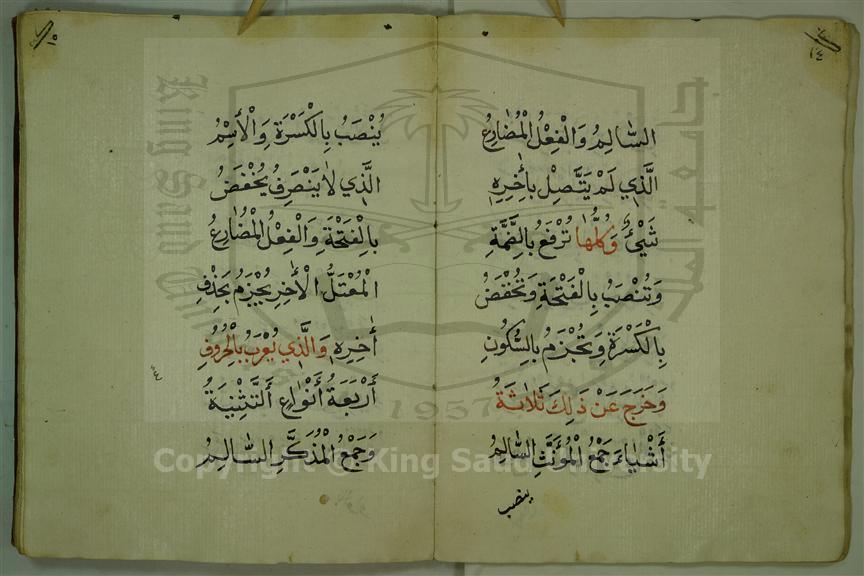 ١٤
السَّالِمُ وَالْفِعْلُ الْمُضَارِعُ
الَّذِي لَمْ يَتَّصِلْ بِأٰخِرِهِ
شَيْئٌ وَكُلُّهَا تُرْفَعُ بِالضَّمَّةِ
وَتُنْصَبُ بِالْفَتْحَةِ وَتُخْفَضُ
بِالْكَسْرَةِ وَتُجْزَمُ بِالسُّكُونِ
وَخَرَجَ عَنْ ذَلِكَ ثَلَاثَةُ
أَشْيَاءَ جَمْعُ الْمُؤَنَّثِ السَّالِمُ
ينصب
١٥
يُنْصَبُ بِالْكَسْرَةِ وَالْأِسْمُ
الَّذِي لَا يَنْصَرِفُ يُخْفَضُ
بِالْفَتْحَةِ وَالْفِعْلُ الْمُضَارِعُ
الْمُعْتَلُّ الْأٰخِرِ يُجْزَمُ بِحَذْفِ
أٰخِرِهِ وَالَّذِي يُعْرَبُ بِالْحُرُوفِ
أَرْبَعَةُ أَنْوَاعٍ أَلتَّثْنِيَةُ
وَجَمْعُ الْمُذَكَّرِ السَّالِمُ
جامعة الملك
King Saud University
1957
Copyright © King Saud University